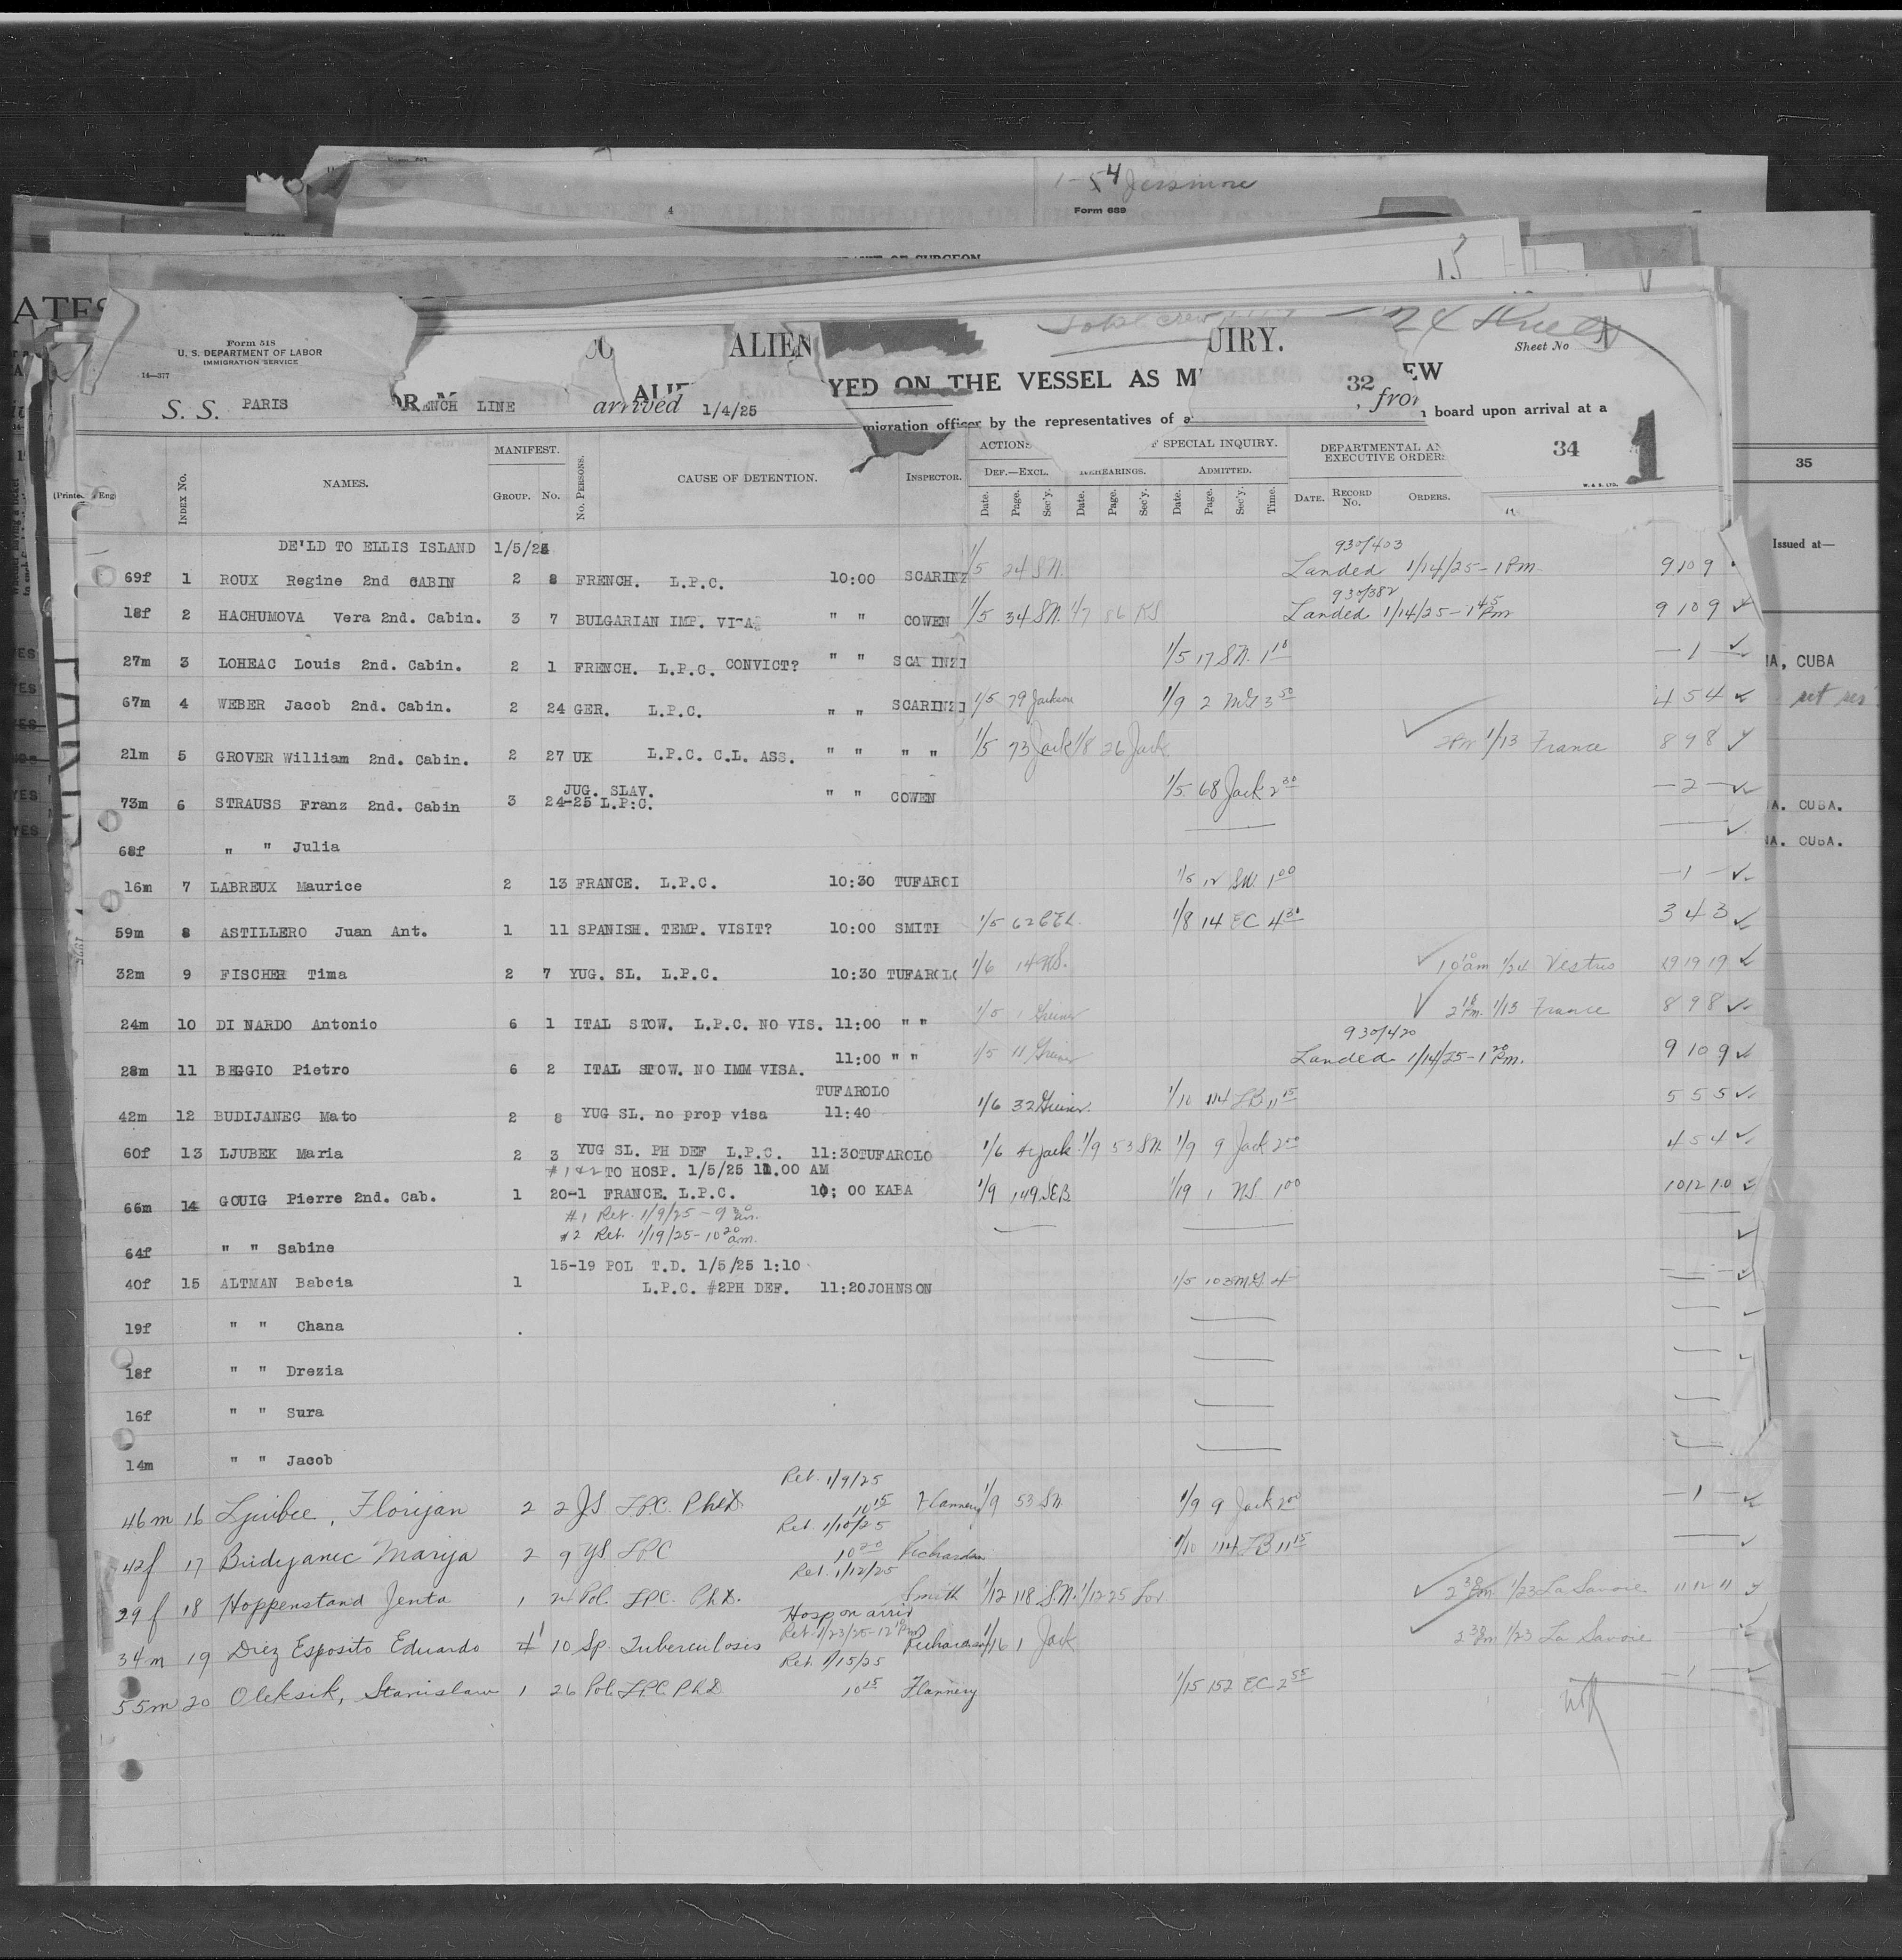 1-54 Jessmore
4
Form 689
OF SURGEON
15
ATES
Form 518
U. S. DEPARTMENT OF LABOR
IMMIGRATION SERVICE
14-377
ALIEN
UIRY.
Sheet No
YED ON THE VESSEL AS M
EW
32
S. S. PARIS
ENCH LINE arrived 1/4/25
from
migration officer by the representatives of a
board upon arrival at a
34
1
35
MANIFEST.
ACTIONS
SPECIAL INQUIRY.
DEPARTMENTAL AN
EXECUTIVE ORDERS
INDEX NO.
NAMES.
GROUP. NO.
NO. PERSONS.
CAUSE OF DETENTION.
INSPECTOR.
DEF.—EXCL.
REHEARINGS.
ADMITTED.
Date. Page. Sec'y. Date. Page. Sec'y. Date. Page. Sec'y. Time.
DATE. RECORD NO. ORDERS.
Issued at—
DE'LD TO ELLIS ISLAND 1/5/25
930/403
69f 1 ROUX Regine 2nd CABIN 2 8 FRENCH. L.P.C. 10:00 SCARINZ 1/5 24 S.N. Landed 1/14/25-1 Pm. 9 10 9
930/382
18f 2 HACHUMOVA Vera 2nd. Cabin. 3 7 BULGARIAN IMP. VISA " " COWEN 1/5 34 S.N. 1/7 86 KS Landed 1/14/25-1 45 Pm 9 10 9
27m 3 LOHEAC Louis 2nd. Cabin. 2 1 FRENCH. L.P.C. CONVICT? " " SCA INZI 1/5 17 S.N. 1 10 — 1 —
NA, CUBA
67m 4 WEBER Jacob 2nd. Cabin. 2 24 GER. L.P.C. " " SCARINZI 1/5 79 Jackson 1/9 2 McG 3 50 4 5 4
21m 5 GROVER William 2nd. Cabin. 2 27 UK L.P.C. C.L. ASS. " " " " 1/5 73 Jack 1/8 26 Jack 1/13 France 8 9 8
73m 6 STRAUSS Franz 2nd. Cabin 3 24-25 JUG. SLAV. L.P.C. " " COWEN 1/5 68 Jack 2 30 — 2 —
NA. CUBA.
68f " " Julia
NA. CUBA.
16m 7 LABREUX Maurice 2 13 FRANCE. L.P.C. 10:30 TUFAROL 1/5 12 S.N. 1 00 — 1 —
59m 8 ASTILLERO Juan Ant. 1 11 SPANISH. TEMP. VISIT? 10:00 SMITH 1/5 62 CEL. 1/8 14 EC 4 30 3 4 3
32m 9 FISCHER Tima 2 7 YUG. SL. L.P.C. 10:30 TUFAROLO 1/6 14 N.S. 10 10 am 1/24 Vestris 19 19 19
24m 10 DI NARDO Antonio 6 1 ITAL STOW. L.P.C. NO VIS. 11:00 " " 1/5 1 Greiner 2 15 Pm. 1/13 France 8 9 8
930/420
28m 11 BEGGIO Pietro 6 2 ITAL STOW. NO IMM VISA. 11:00 " " 1/5 11 Greiner Landed 1/14/25-1 20 Pm. 9 10 9
42m 12 BUDIJANEC Mato 2 8 YUG SL. no prop visa TUFAROLO 11:40 1/6 32 Greiner. 1/10 114 LB 11 15 5 5 5
60f 13 LJUBEK Maria 2 3 YUG SL. PH DEF L.P.C. 11:30 TUFAROLO 1/6 41 Jack 1/9 53 S.N. 1/9 9 Jack 2 00 4 5 4
#1 & 2 TO HOSP. 1/5/25 11.00 AM
66m 14 GOUIG Pierre 2nd. Cab. 1 20-1 FRANCE. L.P.C. 10: 00 KABA 1/9 149 SEB 1/19 1 N.S. 1 00 10 12 10
#1 Ret. 1/9/25 - 9 30 am.
#2 Ret. 1/19/25 - 10 20 am.
64f " " Sabine
15-19 POL T.D. 1/5/25 1:10
40f 15 ALTMAN Babcia 1 L.P.C. #2PH DEF. 11:20 JOHNSON 1/5 103 McG. 4
19f " " Chana
18f " " Drezia
16f " " Sura
14m " " Jacob
Ret. 1/9/25
46m 16 Ljubec, Florijan 2 2 J.S. L.P.C. Ph.D. 11 15 Flannery 1/9 53 S.N. 1/9 9 Jack 2 00 — 1 —
Ret. 1/10/25
42f 17 Budijanec Marija 2 9 Y.S. LPC 10 20 Richardson 1/10 114 LB 11 15
Ret. 1/12/25
29f 18 Hoppenstand Jenta 1 24 Pol. LPC. Ph.D. Smith 1/12 118 S.N. 1/12 25 2 30 Pm 1/23 La Savoie 11 12 11
Hosp on arriv
Ret. 1/23/25-12 10 Pm
34m 19 Diez Esposito Eduardo 1 10 Sp. Tuberculosis Richardson 1/16 1 Jack 2 30 Pm 1/23 La Savoie
Ret. 1/15/25
55m 20 Oleksik, Stanislaw 1 26 Pol. L.P.C. Ph.D 10 15 Flannery 1/15 152 E.C. 2 55 — 1 —